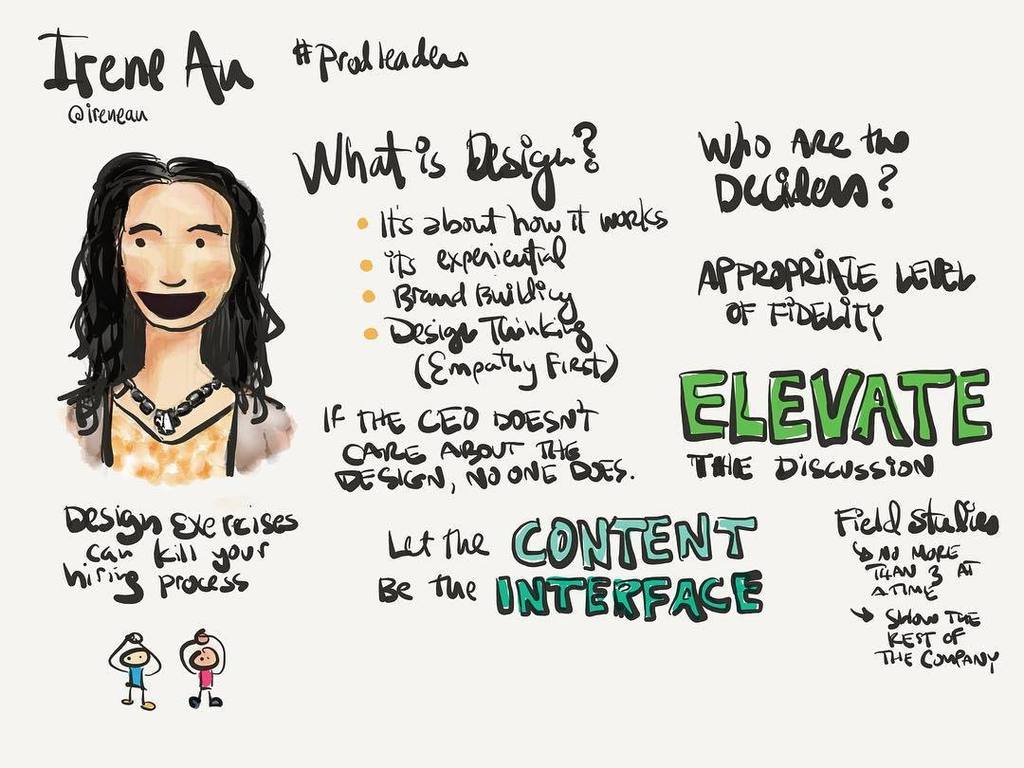 Irene Au
@ireneau
#Prodleaders
What is Design?
It's about how it works
its experiential
Brand Building
Design Thinking
(Empathy First)
IF THE CEO DOESN'T
CARE ABOUT THE
DESIGN, NO ONE DOES.
Let the CONTENT
Be the INTERFACE
Design Exercises
can kill your
hiring process
Who Are the
Deciders?
APPROPRIATE LEVEL
OF FIDELITY
ELEVATE
THE DISCUSSION
Field Studies
↳ NO MORE
THAN 3 AT
A TIME
→ SHOW THE
REST OF
THE COMPANY